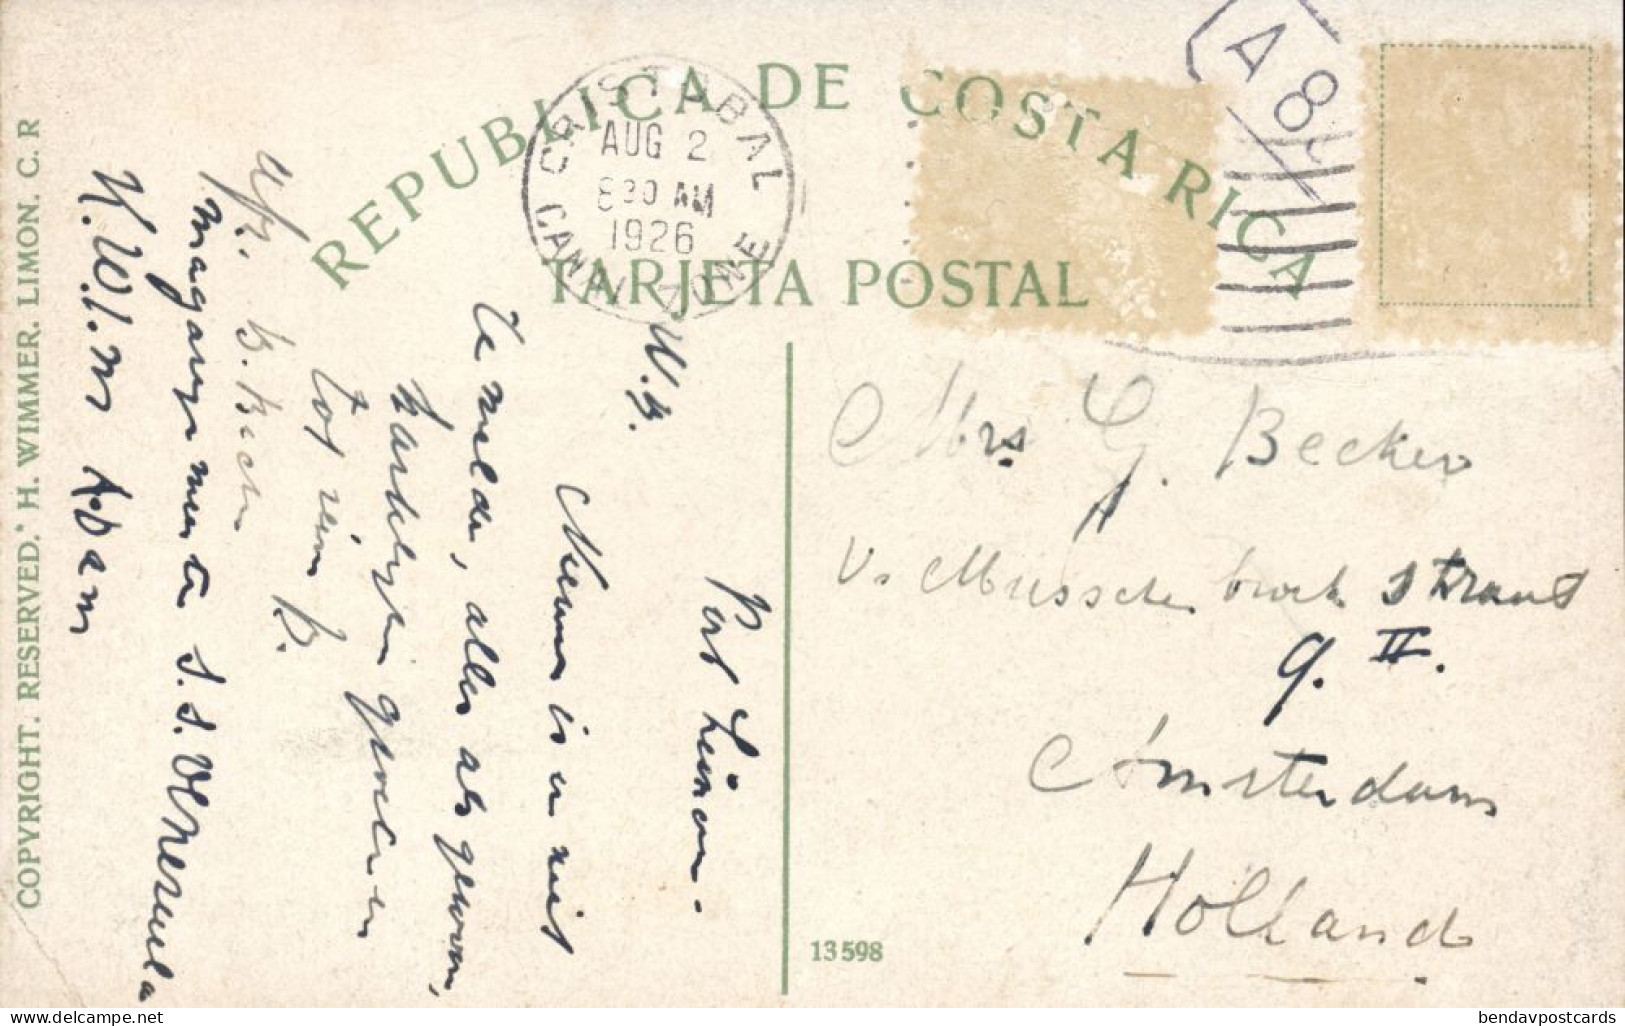 REPUBLICA DE COSTA RICA
TARJETA POSTAL
CRISTOBAL
AUG 2
8 30 AM
1926
CANAL ZONE
A 8
COPYRIGHT. RESERVED. H. WIMMER. LIMON. C. R
Port Limon.
W. B.
Nieuws is er niet
te melden, alles als gewoon,
hartelyke groeten
tot ziens B.
Afz. B.
S.S. Venezuela
K.W.I.M A.Dam
Mrs. G. Becker
V. Musschenbroek straat
9. II.
Amsterdam
Holland
13598
www.delcampe.net
bendavpostcards